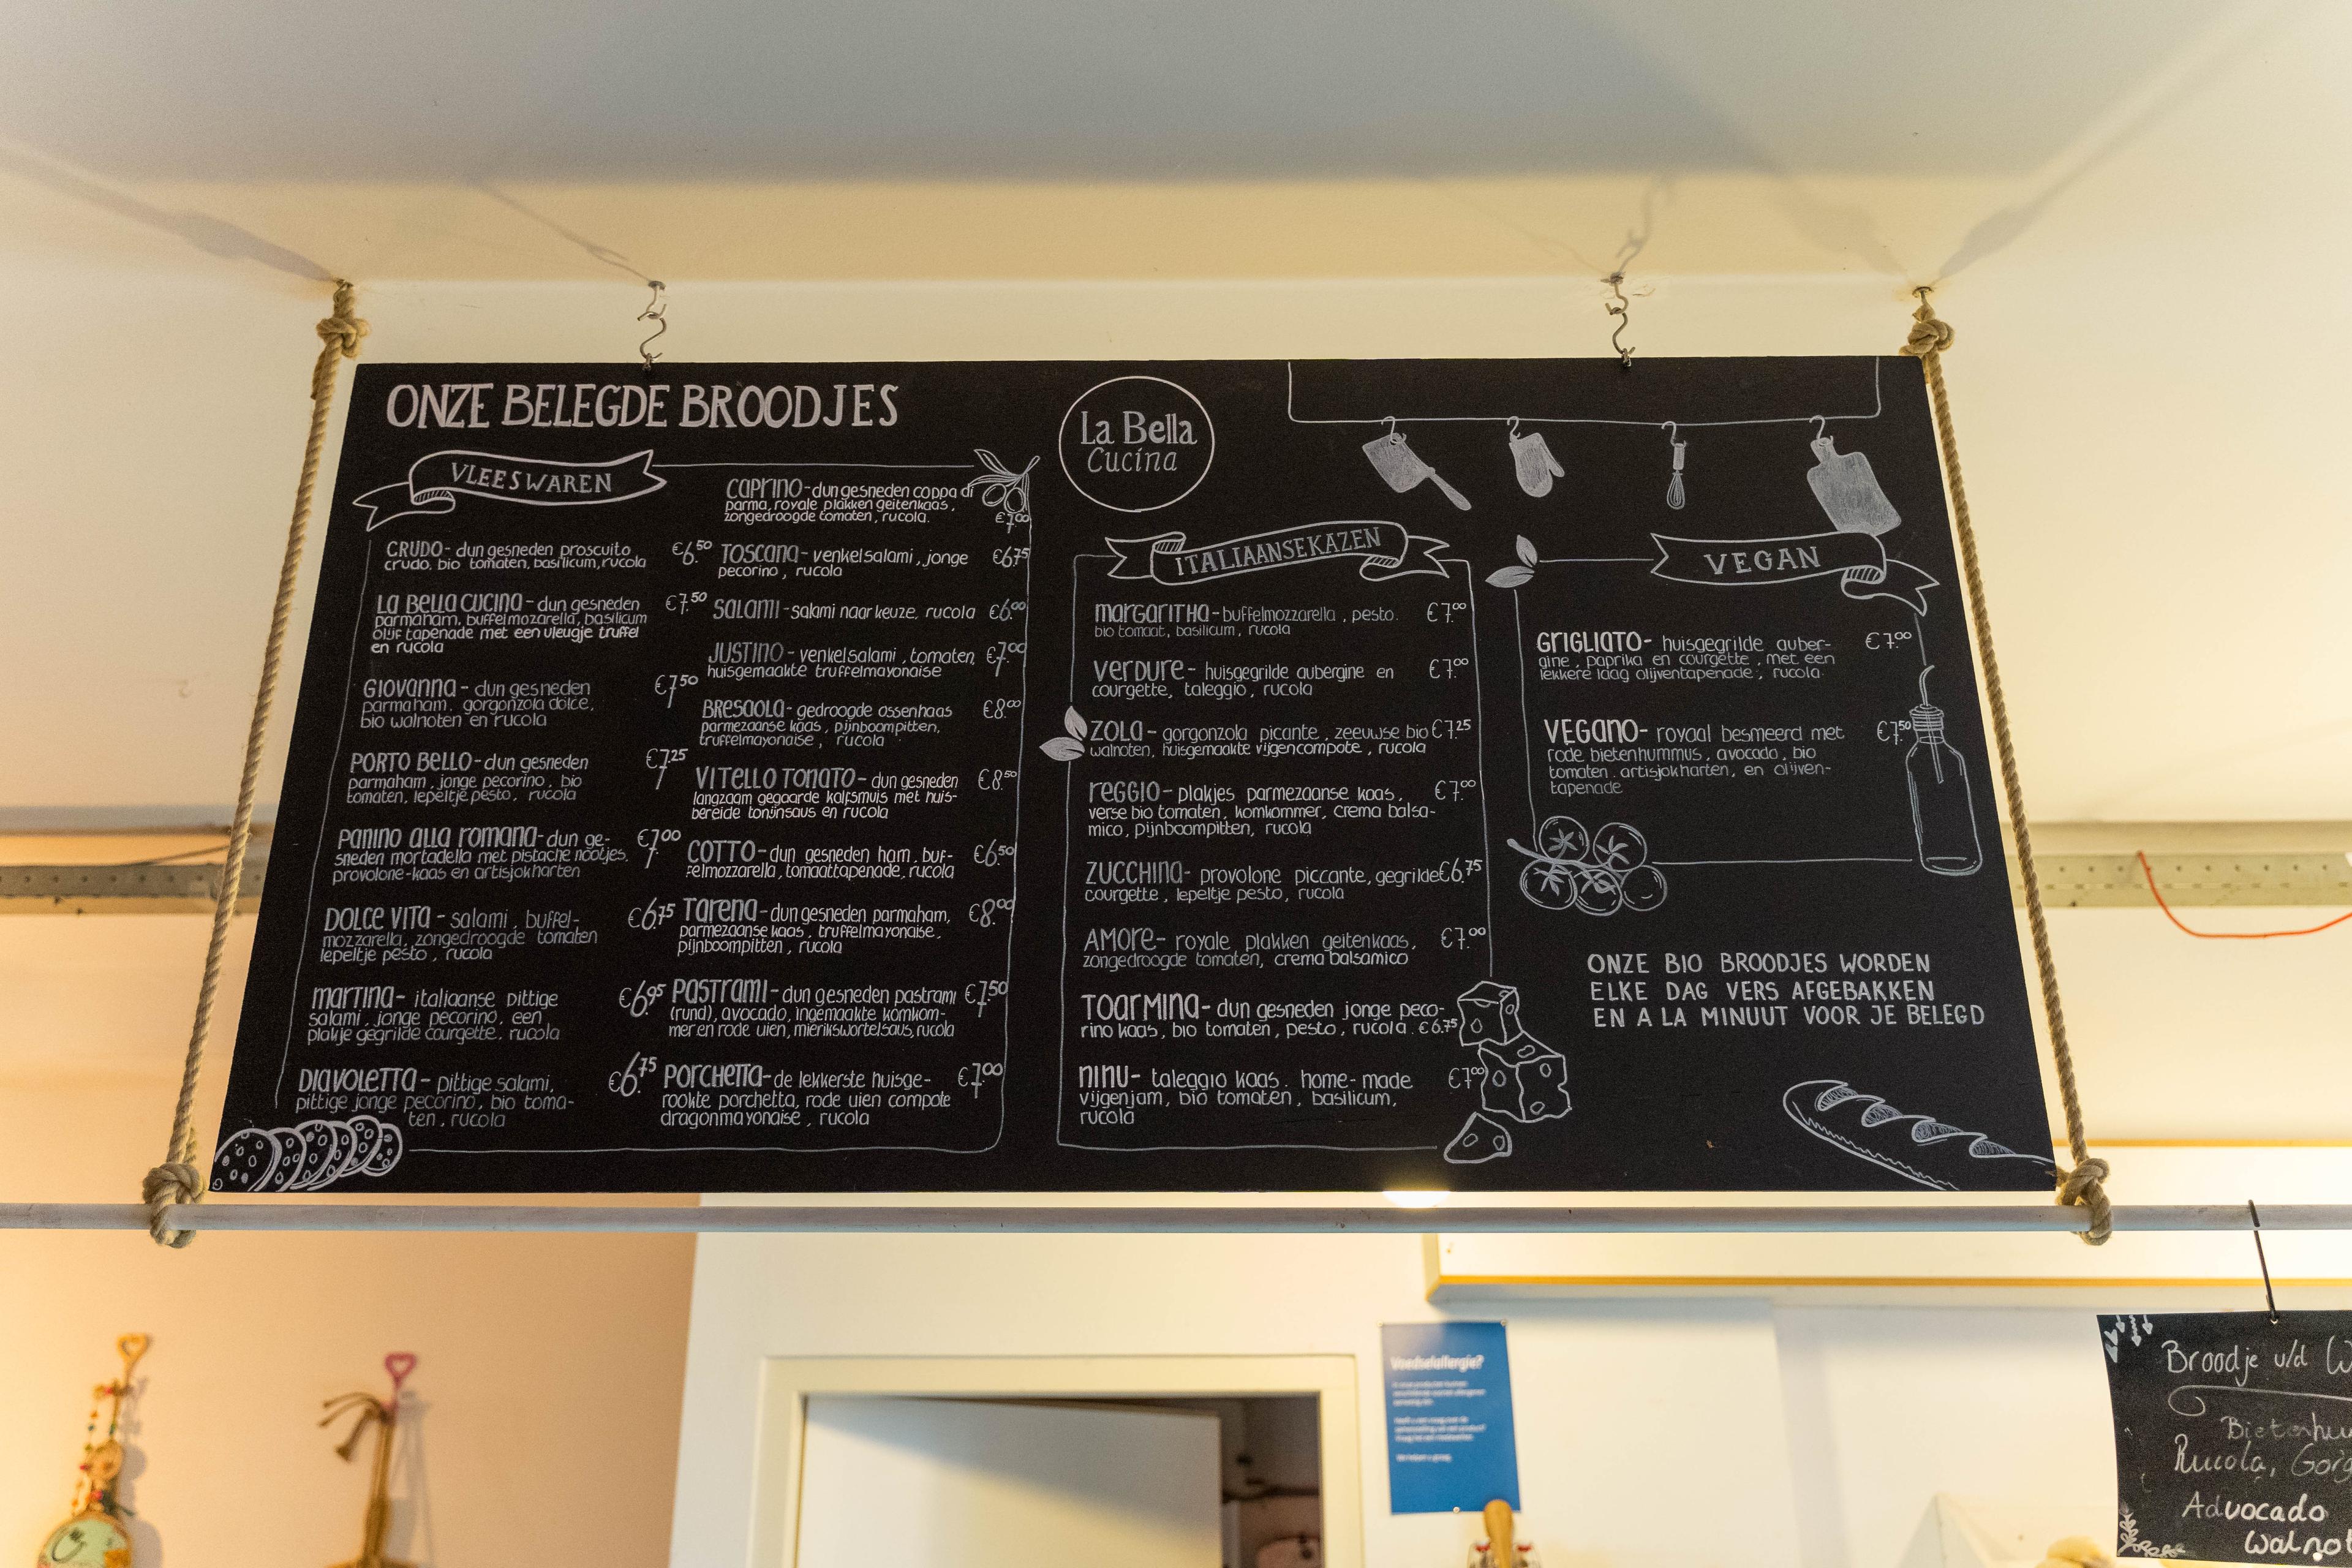 ONZE BELEGDE BROODJES
VLEESWAREN
CRUDO - dun gesneden proscuito €6.50
crudo, bio tomaten, basilicum, rucola
LA BELLA CUCINA - dun gesneden €7.50
parmaham, buffelmozarella, basilicum
olijf tapenade met een vleugje truffel
en rucola
GIOVANNA - dun gesneden €7.50
parmaham, gorgonzola dolce,
bio walnoten en rucola
PORTO BELLO - dun gesneden €7.25
parmaham, jonge pecorino, bio
tomaten, lepeltje pesto, rucola
PANINO ALLA ROMANA - dun ge- €7.00
sneden mortadella met pistache nootjes,
provolone-kaas en artisjokharten
DOLCE VITA - salami, buffel- €6.75
mozzarella, zongedroogde tomaten
lepeltje pesto, rucola
MARTINA - italiaanse pittige €6.95
salami, jonge pecorino, een
plakje gegrilde courgette, rucola
DIAVOLETTA - pittige salami, €6.75
pittige jonge pecorino, bio toma-
ten, rucola
CAPRINO - dun gesneden coppa di
parma, royale plakken geitenkaas,
zongedroogde tomaten, rucola. €7.00
TOSCANA - venkelsalami, jonge €6.75
pecorino, rucola
SALAMI - salami naar keuze, rucola €6.00
JUSTINO - venkelsalami, tomaten, €7.00
huisgemaakte truffelmayonaise
BRESAOLA - gedroogde ossenhaas €8.00
parmezaanse kaas, pijnboompitten,
truffelmayonaise, rucola
VITELLO TONATO - dun gesneden €8.50
langzaam gegaarde kalfsmuis met huis-
bereide tonijnsaus en rucola
COTTO - dun gesneden ham, buf- €6.50
felmozzarella, tomaattapenade, rucola
TARENA - dun gesneden parmaham, €8.00
parmezaanse kaas, truffelmayonaise,
pijnboompitten, rucola
PASTRAMI - dun gesneden pastrami €7.50
(rund), avocado, ingemaakte komkom-
mer en rode uien, mierikswortelsaus, rucola
PORCHETTA - de lekkerste huisge- €7.00
rookte porchetta, rode uien compote
dragonmayonaise, rucola
La Bella
Cucina
ITALIAANSE KAZEN
MARGARITHA - buffelmozzarella, pesto. €7.00
bio tomaat, basilicum, rucola
VERDURE - huisgegrilde aubergine en €7.00
courgette, taleggio, rucola
ZOLA - gorgonzola picante, zeeuwse bio €7.25
walnoten, huisgemaakte vijgencompote, rucola
REGGIO - plakjes parmezaanse kaas, €7.00
verse bio tomaten, komkommer, crema balsa-
mico, pijnboompitten, rucola
ZUCCHINA - provolone piccante, gegrilde €6.75
courgette, lepeltje pesto, rucola
AMORE - royale plakken geitenkaas, €7.00
zongedroogde tomaten, crema balsamico
TOARMINA - dun gesneden jonge peco-
rino kaas, bio tomaten, pesto, rucola. €6.75
NINU - taleggio kaas, home-made €7.00
vijgenjam, bio tomaten, basilicum,
rucola
VEGAN
GRIGLIATO - huisgegrilde auber- €7.00
gine, paprika en courgette, met een
lekkere laag olijventapenade, rucola.
VEGANO - royaal besmeerd met €7.50
rode bietenhummus, avocado, bio
tomaten, artisjokharten, en olijven-
tapenade
ONZE BIO BROODJES WORDEN
ELKE DAG VERS AFGEBAKKEN
EN A LA MINUUT VOOR JE BELEGD
Voedselallergie?
Broodje v/d W
Bietenhu
Rucola, Gorg
Advocado
walno